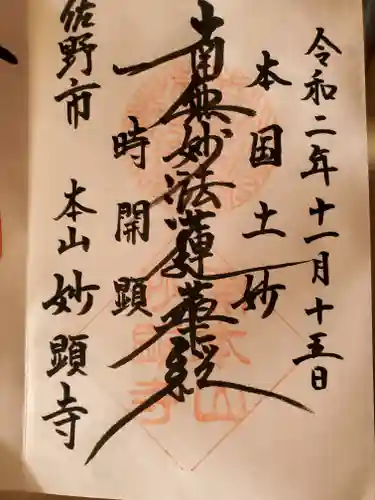 令和二年十一月十五日
本国土妙
南無妙法蓮華経
時開顕
佐野市 本山妙顕寺